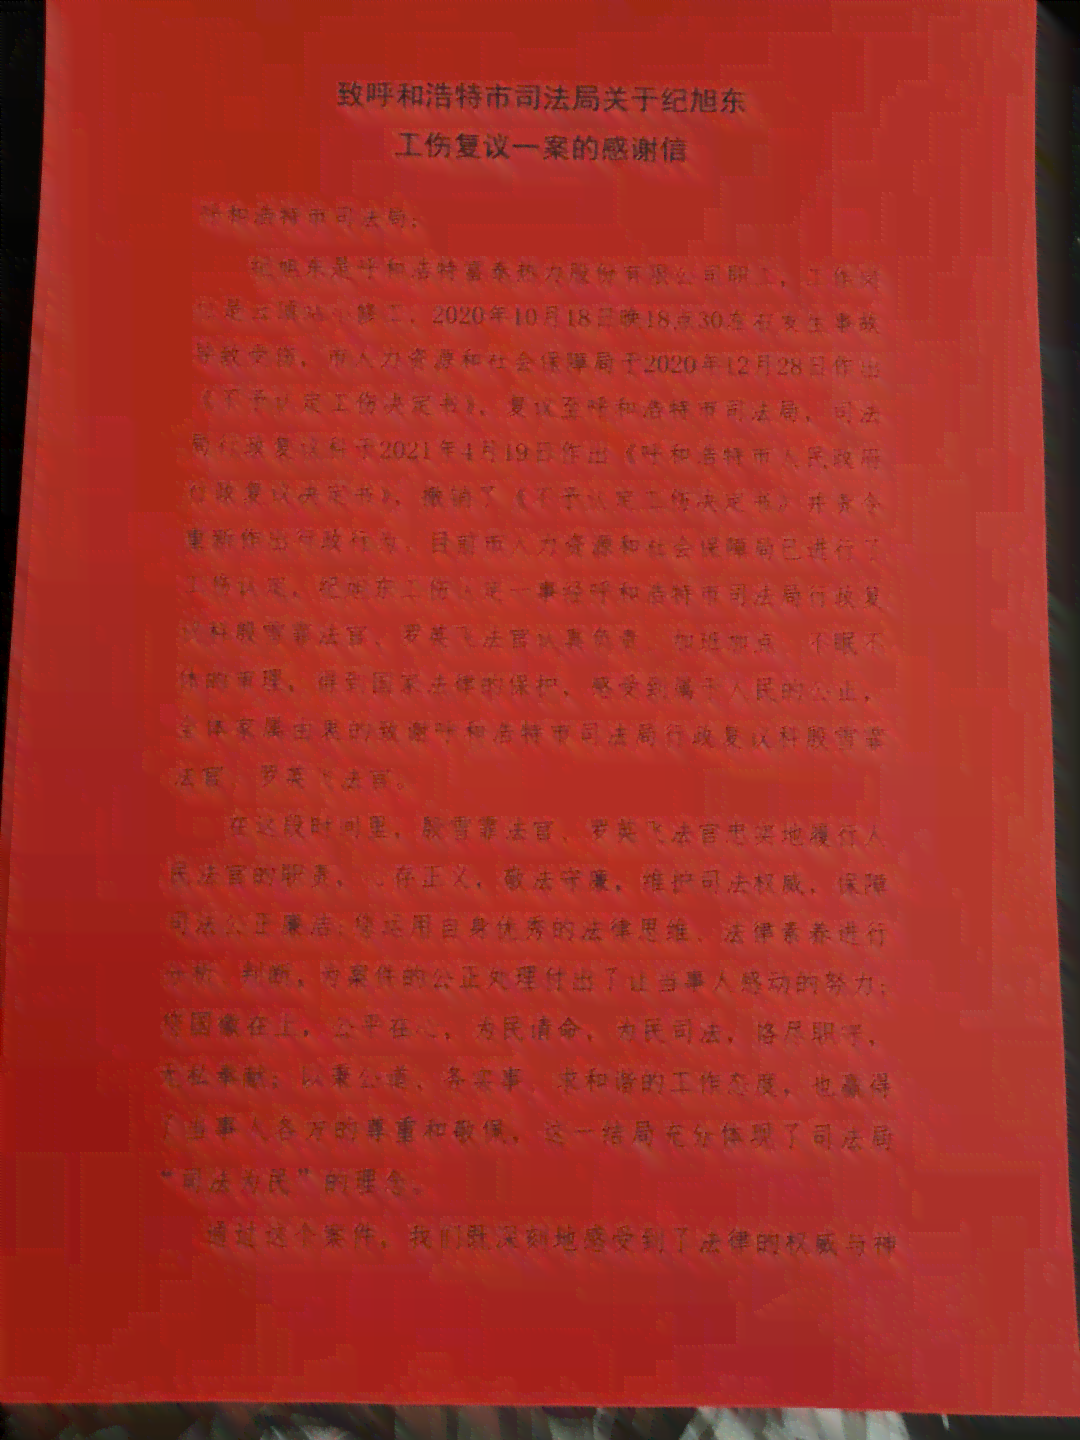 致呼和浩特市司法局关于纪旭东
工伤复议一案的感谢信
呼和浩特市司法局：
纪旭东是呼和浩特富泰热力股份有限公司职工，工作岗
位是 小修工，2020年10月18日晚18点30左右发生事故
导致受伤，市人力资源和社会保障局于2020年12月28日作出
《不予认定工伤决定书》，复议至呼和浩特市司法局，司法
局行政复议科于2021年4月19日作出《呼和浩特市人民政府
行政复议决定书》，撤销了《不予认定工伤决定书》并责令
重新作出行政行为，目前市人力资源和社会保障局已进行了
工伤认定，纪旭东工伤认定一事经呼和浩特市司法局行政复
议科殷雪霏法官、罗英飞法官认真负责、加班加点、不眠不
休的审理，得到国家法律的保护，感受到属于人民的公正，
全体家属由衷的致谢呼和浩特市司法局行政复议科殷雪霏
法官、罗英飞法官。
在这段时间里，殷雪霏法官、罗英飞法官忠实地履行人
民法官的职责，心存正义，敬法守廉，维护司法权威，保障
司法公正廉洁；您运用自身优秀的法律思维、法律素养进行
分析、判断，为案件的公正处理付出了让当事人感动的努力；
您国徽在上，公平在心，为民请命，为民司法，恪尽职守，
无私奉献；以秉公道、务实事、求和谐的工作态度，也赢得
了当事人各方的尊重和敬佩，这一结局充分体现了司法局
“司法为民”的理念。
通过这个案件，我们既深刻地感受到了法律的权威与神